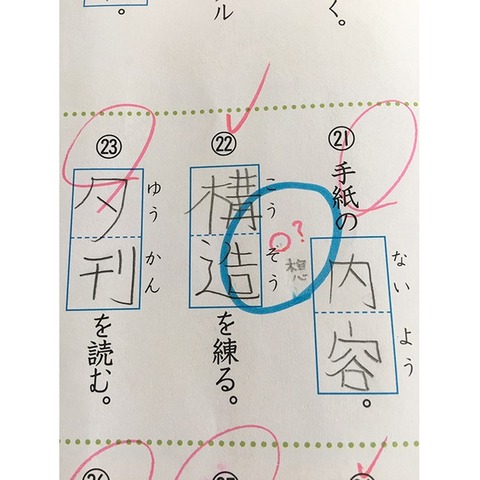 く。
ル
。
㉑ 手紙の内容。
ないよう
㉒ 構造を練る。
こうぞう
○?
想
㉓ 夕刊を読む。
ゆうかん